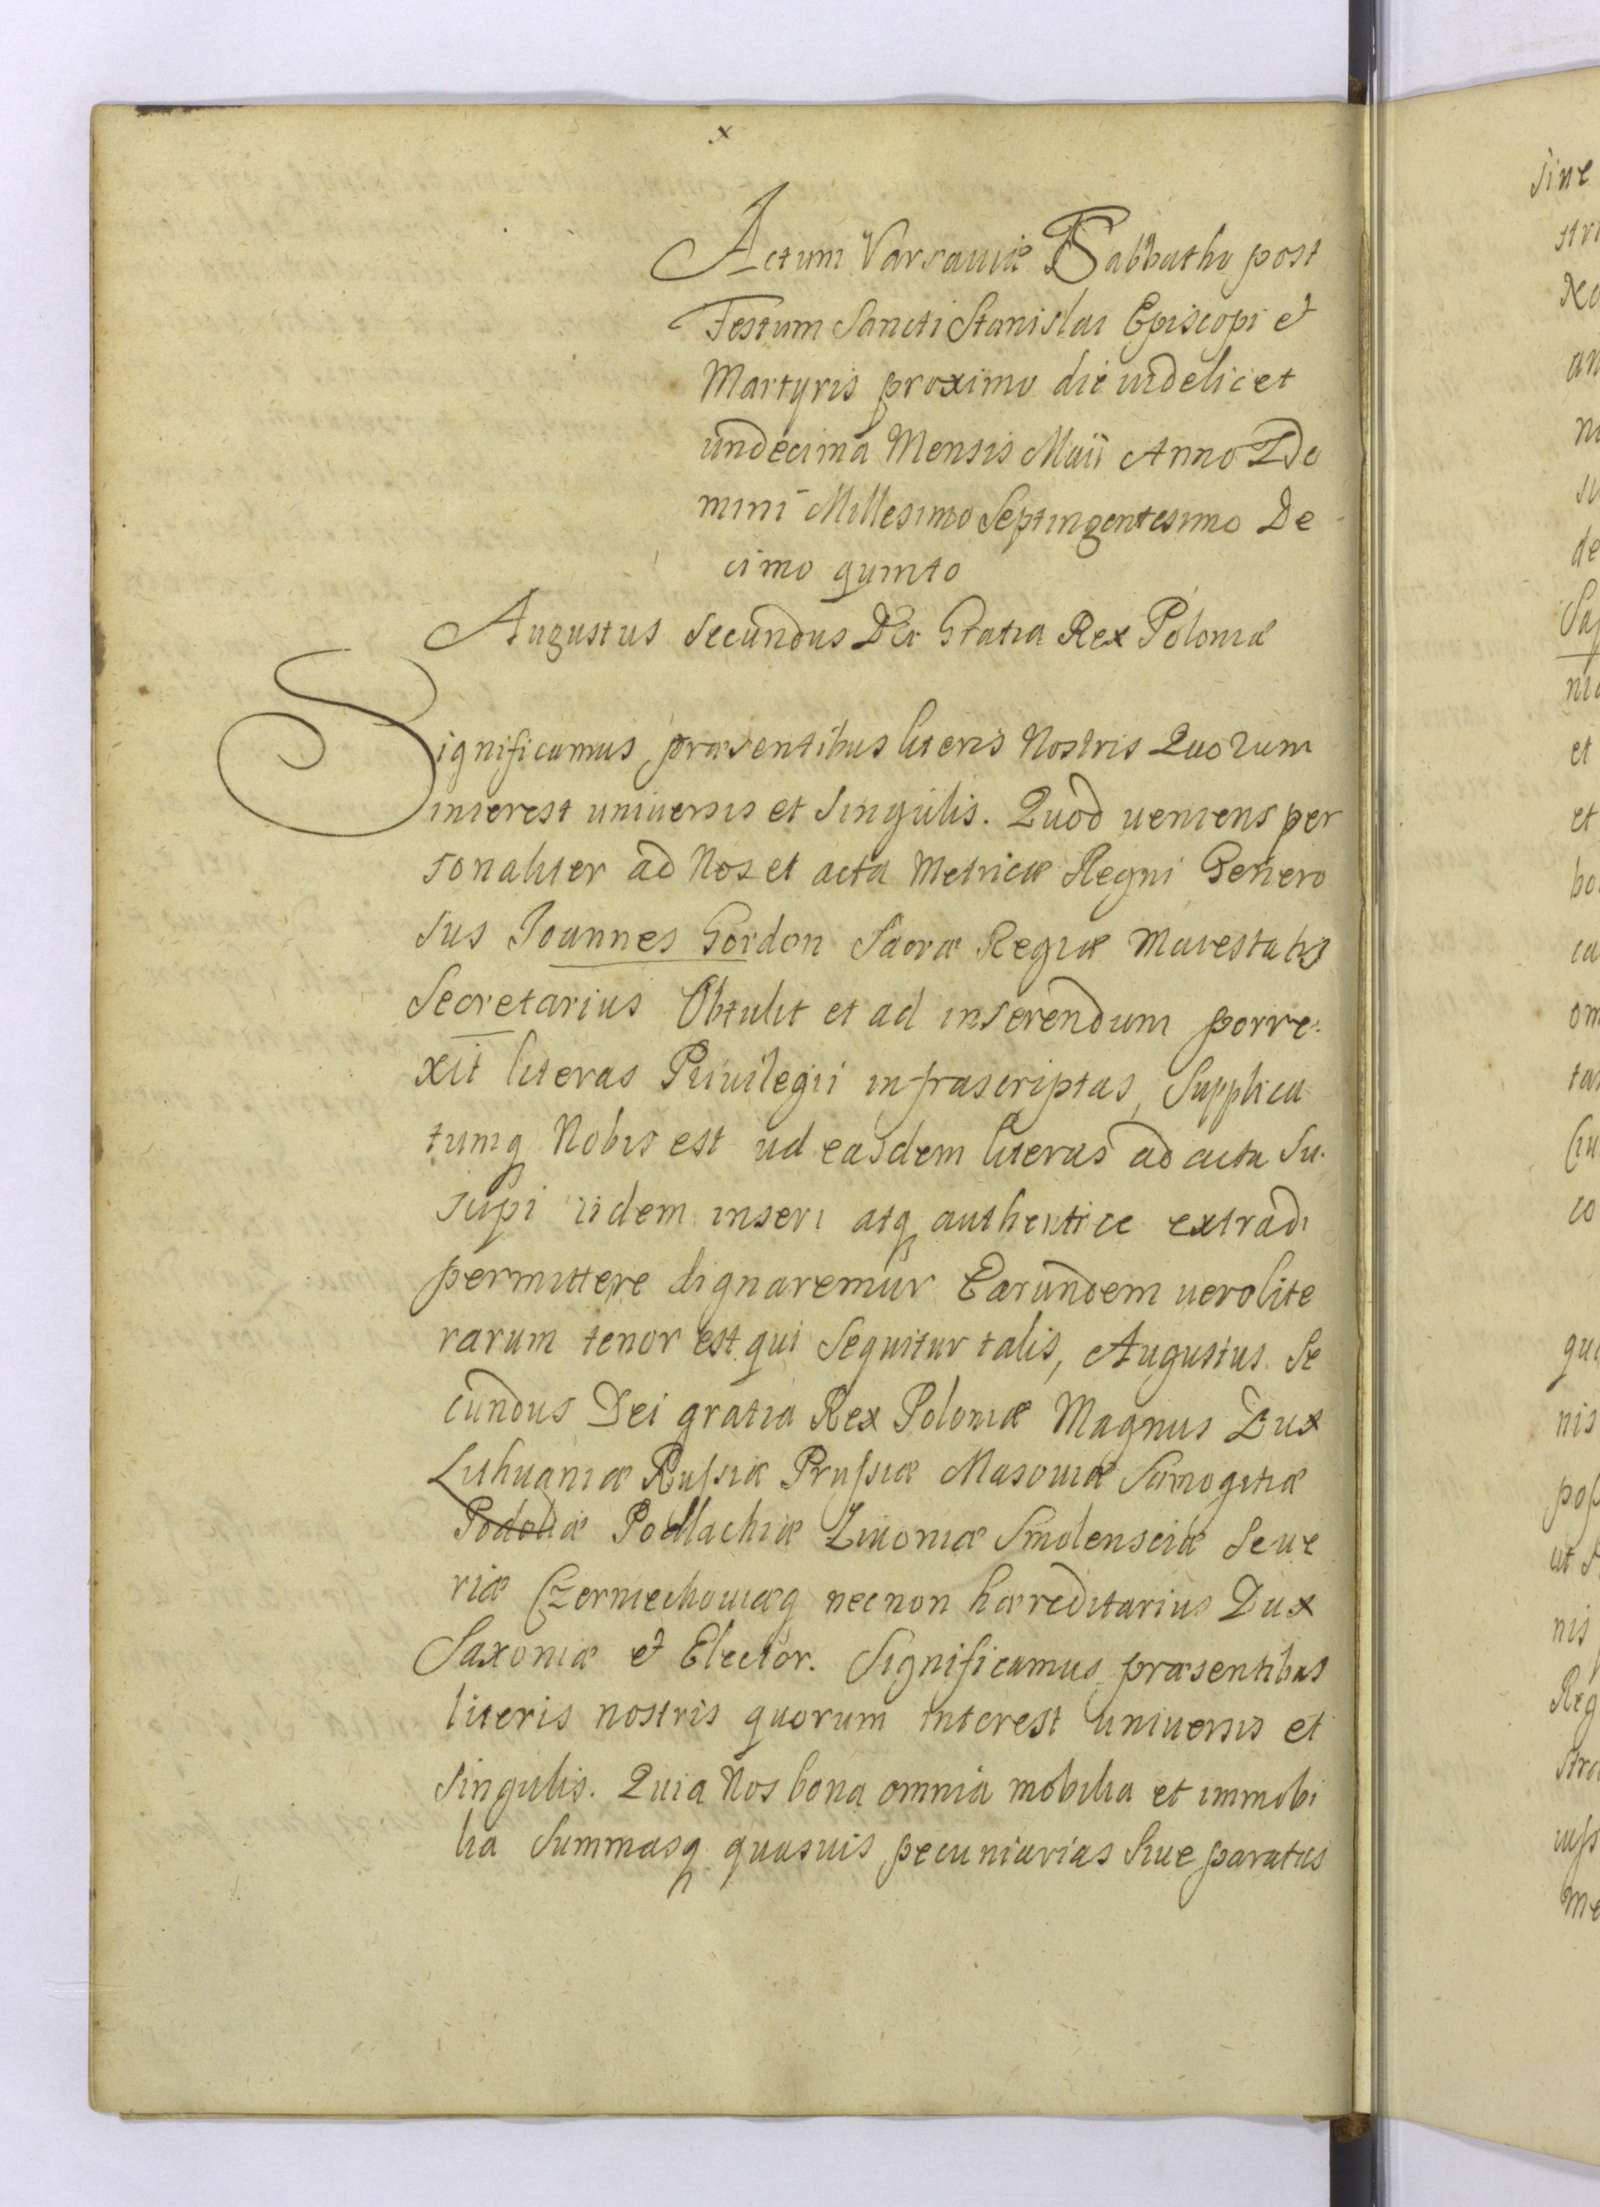 x
Actum Varsauiæ Sabbatho post
Festum Sancti Stanislai Episcopi et
Martyris proximo die uidelicet
undecima Mensis Maii Anno Do
mini Millesimo Septingentesimo De
cimo quinto
Augustus Secundus Dei Gratia Rex Poloniæ
Significamus præsentibus literis Nostris Quorum
interest uniuersis et Singulis. Quod ueniens per
sonaliter ad Nos et acta Metricæ Regni Genero
sus Joannes Gordon Sacræ Regiæ Maiestatis
Secretarius Obtulit et ad inserendum porre
xit literas Priuilegii infrascriptas, Supplica
tumq Nobis est ud easdem literas ad acta Su
scipi iidem inseri atq authentice extradi
permittere dignaremur Earundem uero lite
rarum tenor est qui Sequitur talis, Augustus Se
cundus Dei gratia Rex Poloniæ Magnus Dux
Lithuaniæ Russiæ Prussiæ Masouiæ Samogitiæ
Podoliæ Podlachiæ Liuoniæ Smolensciæ Seue
riæ Czerniechouiæq necnon hæreditarius Dux
Saxoniæ et Elector. Significamus præsentibus
literis nostris quorum interest uniuersis et
Singulis. Quia Nos bona omnia mobilia et immobi
lia Summasq quasuis pecuniarias Siue paratas